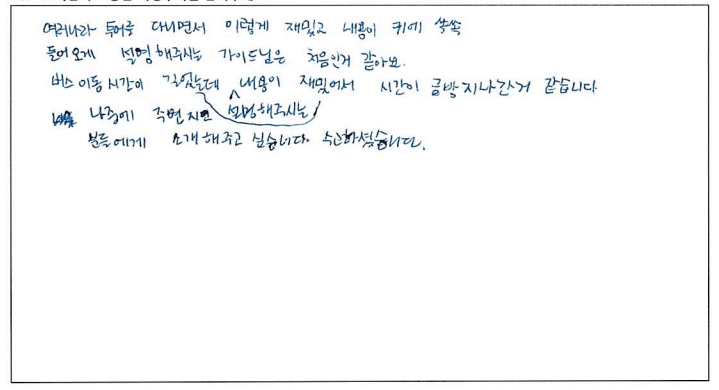 여러나라 투어를 다니면서 이렇게 재밌고 내용이 귀에 쏙쏙
들어오게 설명해주시는 가이드님은 처음인거 같아요.
버스 이동시간이 길었는데 설명해주시는 내용이 재밌어서 시간이 금방 지나간거 같습니다
나중에 주변지인
분들에게 소개해주고 싶습니다. 수고하셨습니다.